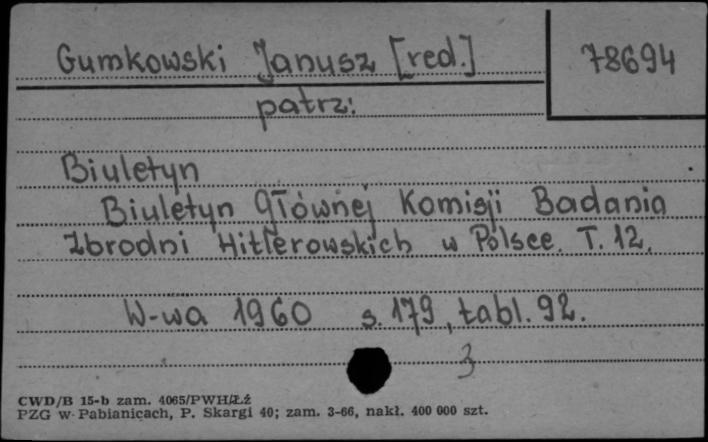 Gumkowski Janusz [red.]
78694
patrz:
Biuletyn
Biuletyn Głównej Komisji Badania
Zbrodni Hitlerowskich w Polsce. T. 12.
W-wa 1960 s. 179, tabl. 92.
3
CWD/B 15-b zam. 4065/PWH/Łź
PZG w Pabianicach, P. Skargi 40; zam. 3-66, nakł. 400 000 szt.